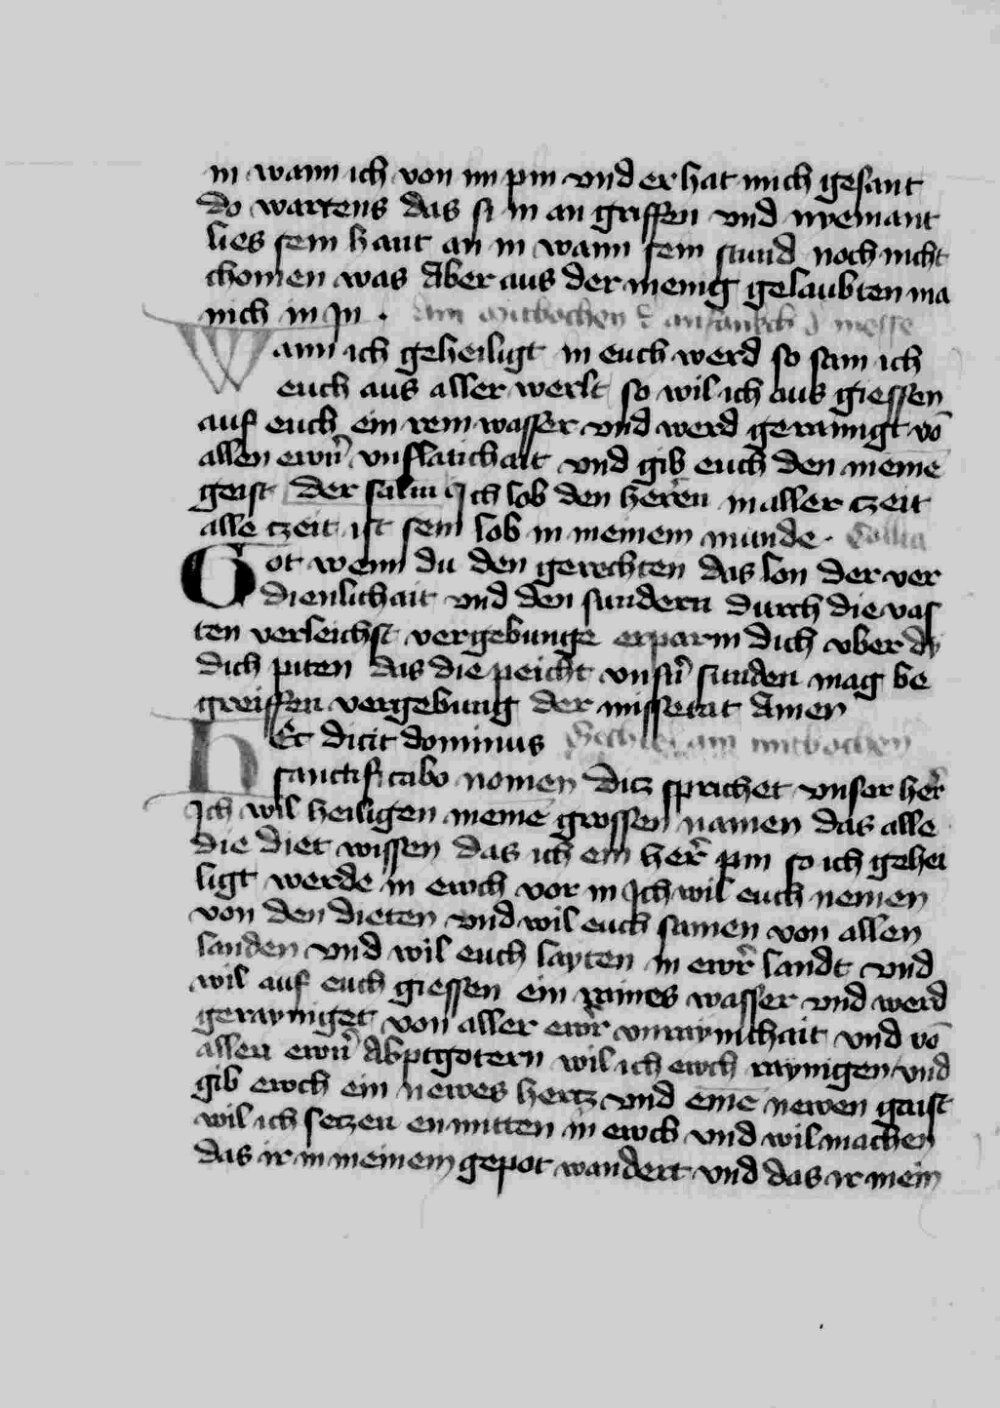 in wann ich von im pin vnd er hat mich gesant
do wartens das si in an griffen vnd nyemant
lies sein hant an in wann sein stund noch nicht
chomen was Aber aus der menig gelaubten ma
nich in In . Am mitbochen d' anfankch d' messe
Wann ich geheiligt in euch werd so sam ich
euch aus aller werlt so wil ich aus giessen
auf euch ein rein wasser vnd werd gerainigt vō
allen ewrn̄ vnflatichait vnd gib euch den meinē
geist Der salm Ich lob den herren in aller czeit
alle czeit ist sein lob in meinem munde . Collta
Got wenn du den gerechten das lon der ver
dienlichait vnd den sundern durch die vas
ten verleichst vergebunge erparm dich vber dy
dich piten das die peicht vnsr̄ sunden mag be
greiffen vergebung der missetat Amen
HEc dicit dominus am mitbochen
sanctificabo nomen Ditz sprichet vnser her̄
Ich wil heiligen meinē grossen namen das alle
die diet wissen das ich ein her̄ pin so ich gehei
ligt werde in ewch vor in Ich wil euch nemen
von den dieten vnd wil euch samen von allen
landen vnd wil euch layten in ewr̄ landt vnd
wil auf euch giessen ein raines wasser vnd werd
gerayniget von aller ewr̄ vnraynichait vnd vō
allen ewrn̄ Abptgotern wil ich ewch raynigen vnd
gib ewch ein newes hertz vnd einē newen gaist
wil ich setzen enmitten in ewch vnd wil machen
das ir in meinem gepot wandert vnd das ir mein